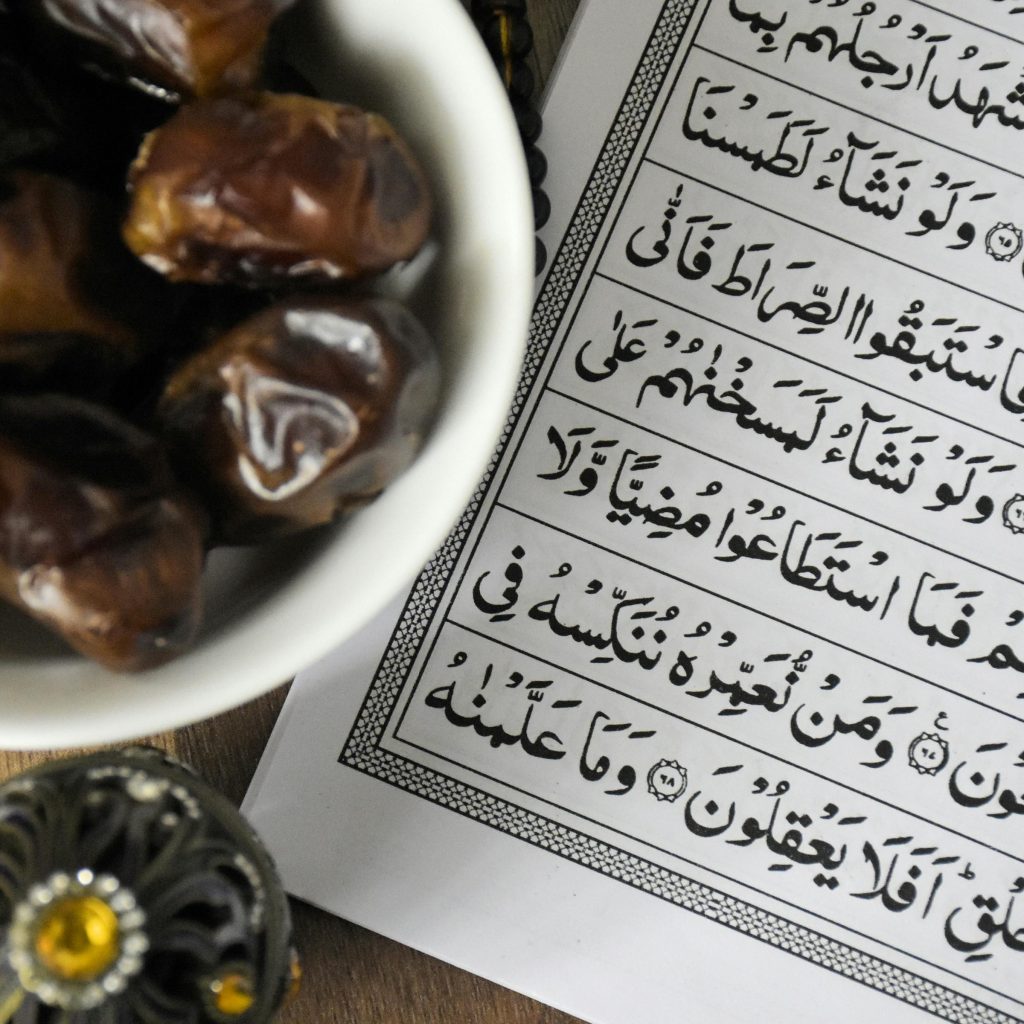 تَشْهَدُ اَرْجُلُهُمْ بِمَا
۶۵ وَلَوْ نَشَآءُ لَطَمَسْنَا
فَاسْتَبَقُوا الصِّرَاطَ فَاَنّٰى
وَلَوْ نَشَآءُ لَمَسَخْنٰهُمْ عَلٰى
فَمَا اسْتَطَاعُوْا مُضِيًّا وَّلَا
۶۷ وَمَنْ نُّعَمِّرْهُ نُنَكِّسْهُ فِى
اَفَلَا يَعْقِلُوْنَ ۶۸ وَمَا عَلَّمْنٰهُ